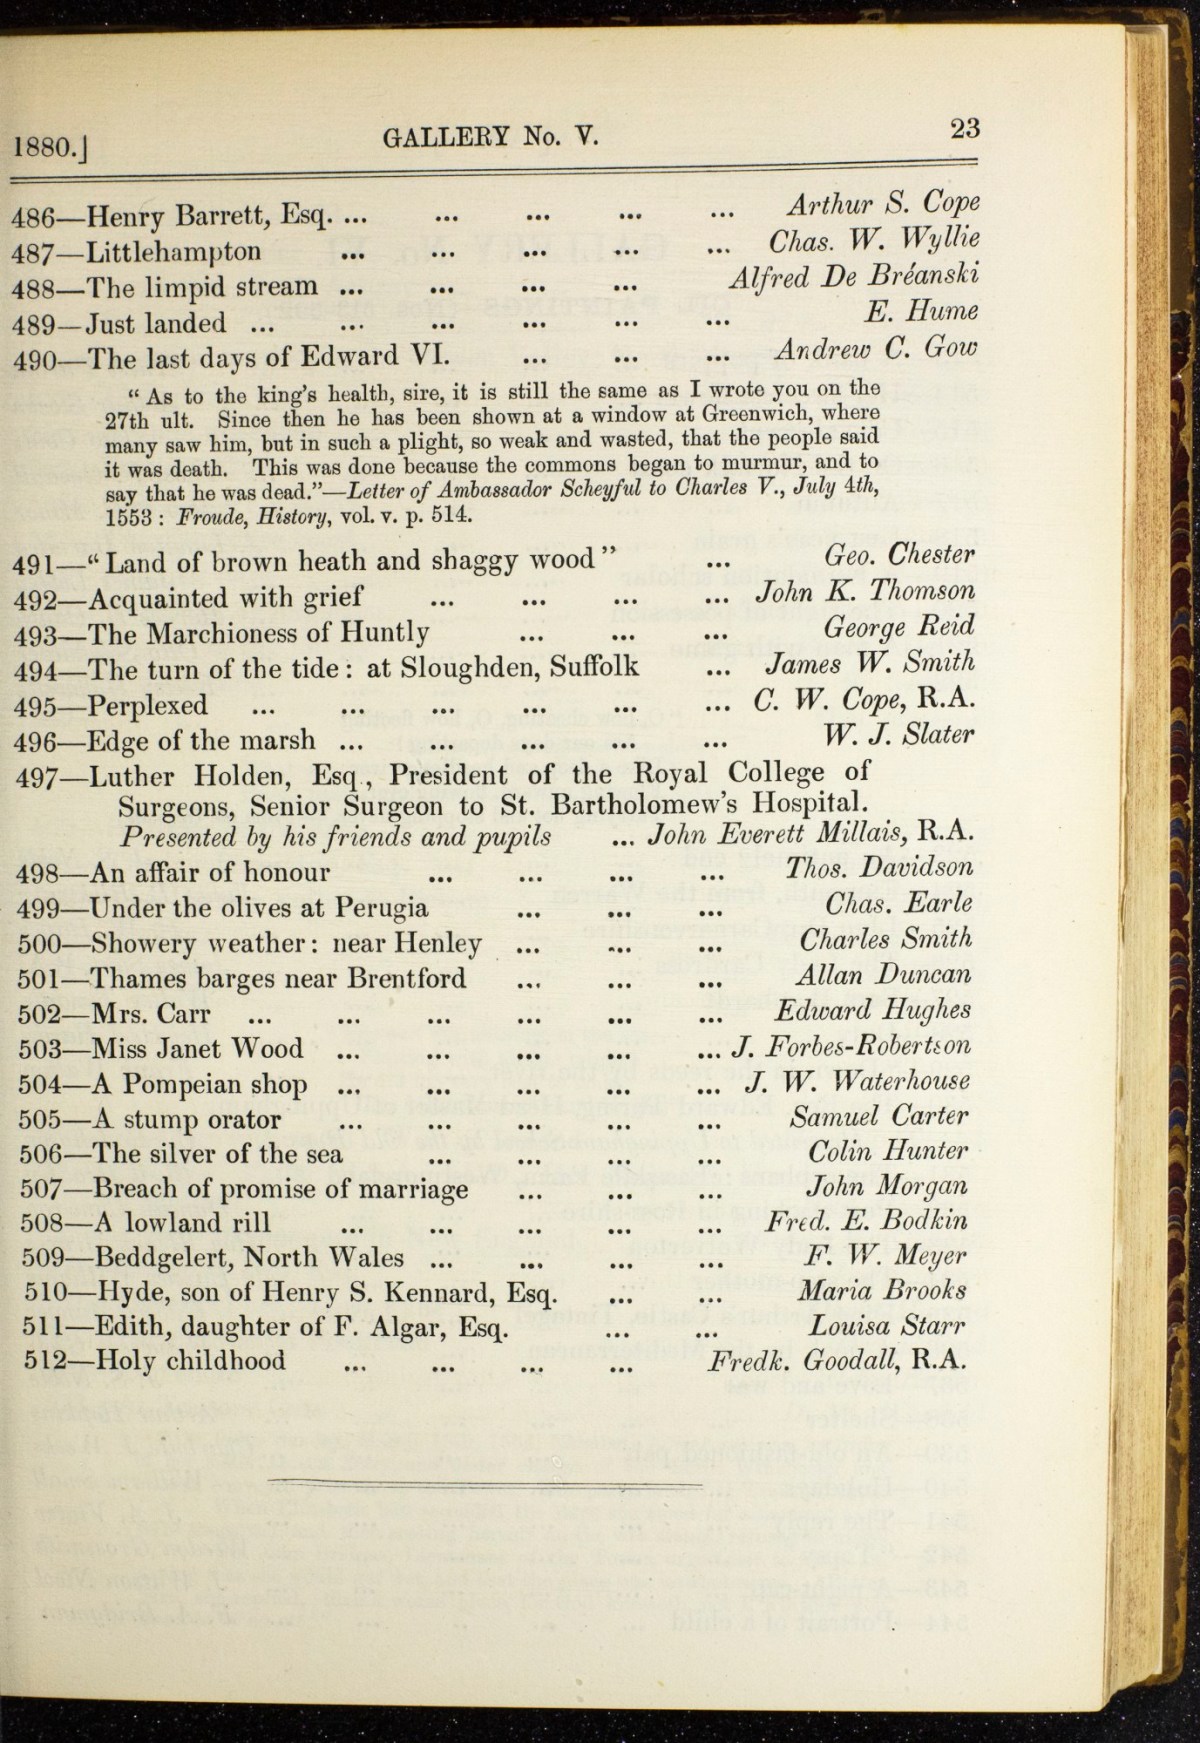 1880.] GALLERY No. V. 23
486—Henry Barrett, Esq. ... ... ... ... ... Arthur S. Cope
487—Littlehampton ... ... ... ... ... Chas. W. Wyllie
488—The limpid stream ... ... ... ... Alfred De Bréanski
489—Just landed ... ... ... ... ... ... E. Hume
490—The last days of Edward VI. ... ... ... Andrew C. Gow
“As to the king’s health, sire, it is still the same as I wrote you on the
27th ult. Since then he has been shown at a window at Greenwich, where
many saw him, but in such a plight, so weak and wasted, that the people said
it was death. This was done because the commons began to murmur, and to
say that he was dead.”—Letter of Ambassador Scheyful to Charles V., July 4th,
1553 : Froude, History, vol. v. p. 514.
491—“Land of brown heath and shaggy wood” ... Geo. Chester
492—Acquainted with grief ... ... ... ... John K. Thomson
493—The Marchioness of Huntly ... ... ... George Reid
494—The turn of the tide : at Sloughden, Suffolk ... James W. Smith
495—Perplexed ... ... ... ... ... ... C. W. Cope, R.A.
496—Edge of the marsh ... ... ... ... ... W. J. Slater
497—Luther Holden, Esq., President of the Royal College of
Surgeons, Senior Surgeon to St. Bartholomew’s Hospital.
Presented by his friends and pupils ... John Everett Millais, R.A.
498—An affair of honour ... ... ... ... Thos. Davidson
499—Under the olives at Perugia ... ... ... Chas. Earle
500—Showery weather : near Henley ... ... ... Charles Smith
501—Thames barges near Brentford ... ... ... Allan Duncan
502—Mrs. Carr ... ... ... ... ... ... Edward Hughes
503—Miss Janet Wood ... ... ... ... ... J. Forbes-Robertson
504—A Pompeian shop ... ... ... ... ... J. W. Waterhouse
505—A stump orator ... ... ... ... ... Samuel Carter
506—The silver of the sea ... ... ... ... Colin Hunter
507—Breach of promise of marriage ... ... ... John Morgan
508—A lowland rill ... ... ... ... ... Fred. E. Bodkin
509—Beddgelert, North Wales ... ... ... ... F. W. Meyer
510—Hyde, son of Henry S. Kennard, Esq. ... ... Maria Brooks
511—Edith, daughter of F. Algar, Esq. ... ... Louisa Starr
512—Holy childhood ... ... ... ... Fredk. Goodall, R.A.